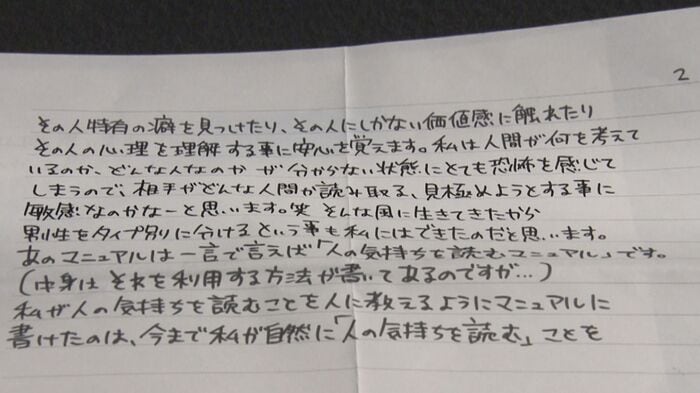 2
その人特有の癖を見つけたり、その人にしかない価値感に触れたり
その人の心理を理解する事に安心を覚えます。私は人間が何を考えて
いるのか、どんな人なのか が 分からない状態にとても恐怖を感じて
しまうので、相手がどんな人間か読み取る、見極めようとする事に
敏感なのかなーと思います。笑 そんな風に生きてきたから
男性をタイプ別りに分けるという事も私にはできたのだと思います。
あのマニュアルは一言で言えば「人の気持ちを読むマニュアル」です。
(中身は それを利用する方法が書いてあるのですが…)
私が人の気持ちを読むことを人に教えるようにマニュアルに
書けたのは、今まで私が自然に「人の気持ちを読む」ことを